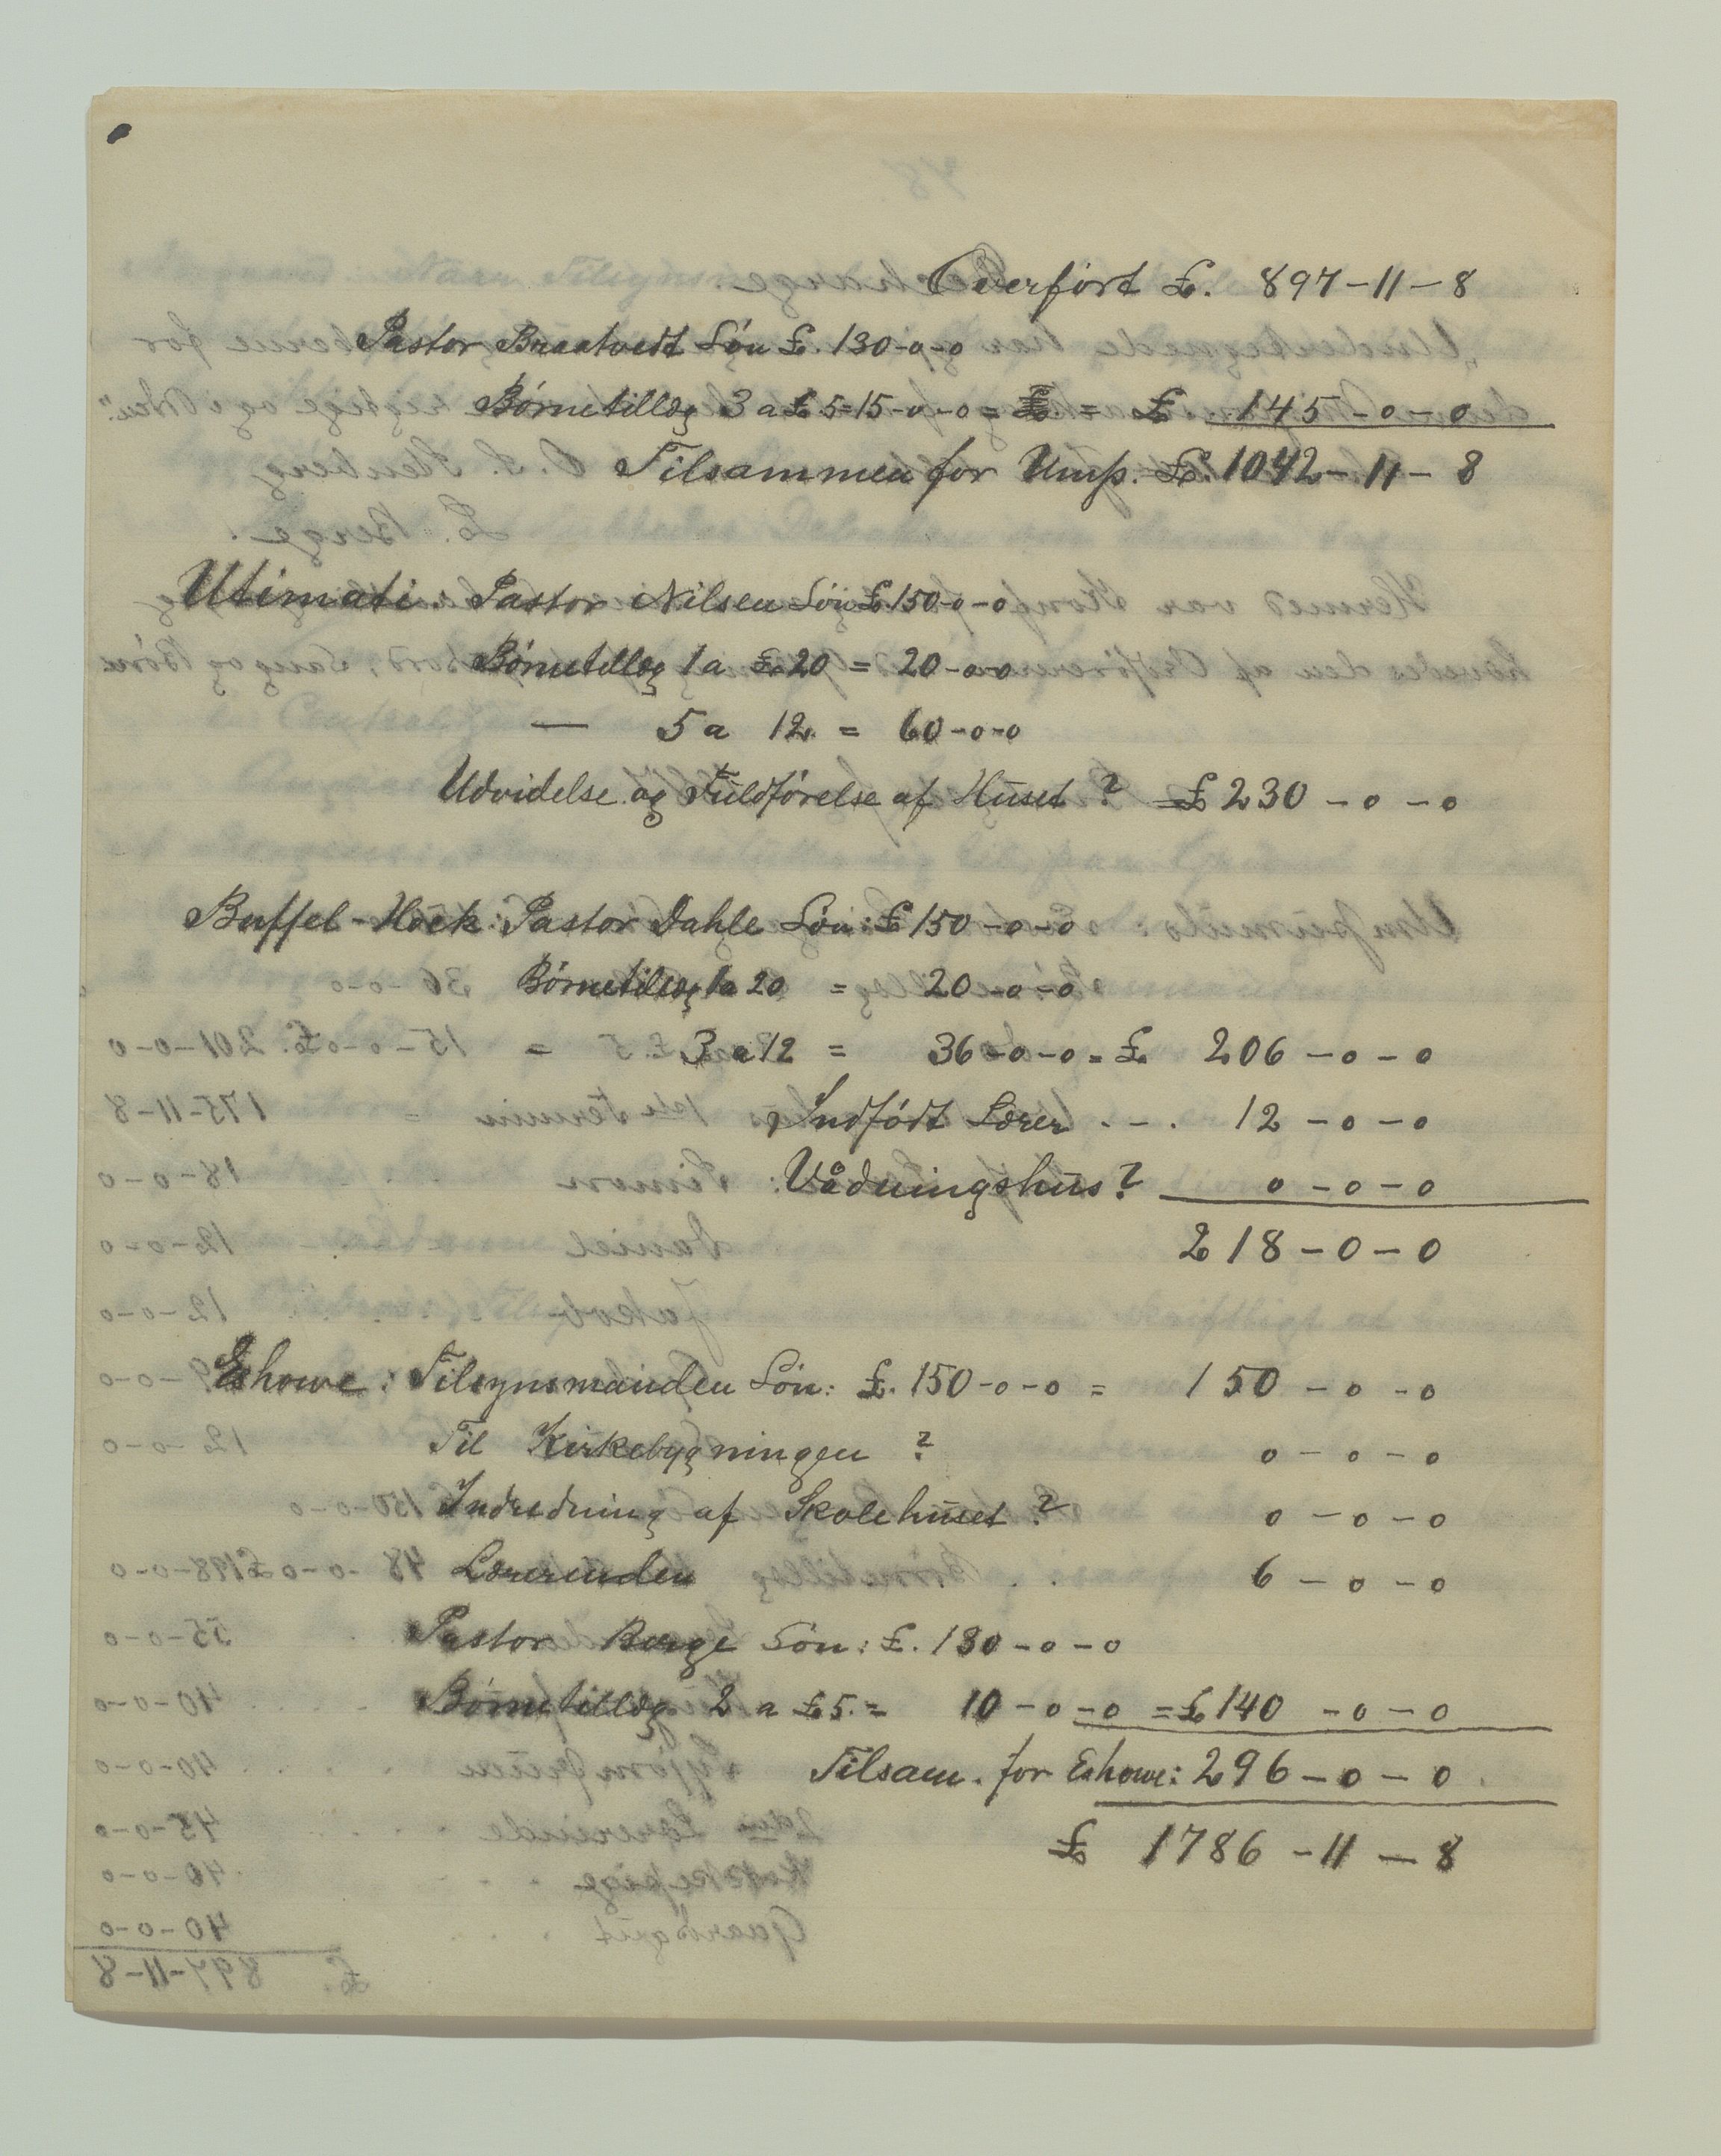 Overført £. 897-11-8
Pastor Braatvedt Løn £. 130-0-0
Børnetillæg 3 a £ 5=15-0-0 = = £ 145-0-0
Tilsammen for Ump. £. 1042-11-8
Utimati. Pastor Nilsen Løn £ 150-0-0
Børnetillæg 1 a £. 20 = 20-0-0
— 5 a 12. = 60-0-0
Udvidelse og Fuldførelse af Huset? £ 230-0-0
Buffel-Hoek: Pastor Dahle Løn: £ 150-0-0
Børnetillæg 1 a 20 = 20-0-0
3 a 12 = 36-0-0 = £ 206-0-0
Indfødt Lærer . - . 12-0-0
Våningshus? 0-0-0
218-0-0
Eshowe: Tilsynsmanden Løn: £. 150-0-0 = 150-0-0
Til Kirkebygningen ? 0-0-0
Indredning af Skolehuset? 0-0-0
Lærerinden 6-0-0
Pastor Berge Løn: £. 130-0-0
Børnetillæg 2 a £5. = 10-0-0 = £ 140-0-0
Tilsam. for Eshowe: 296-0-0
£ 1786-11-8